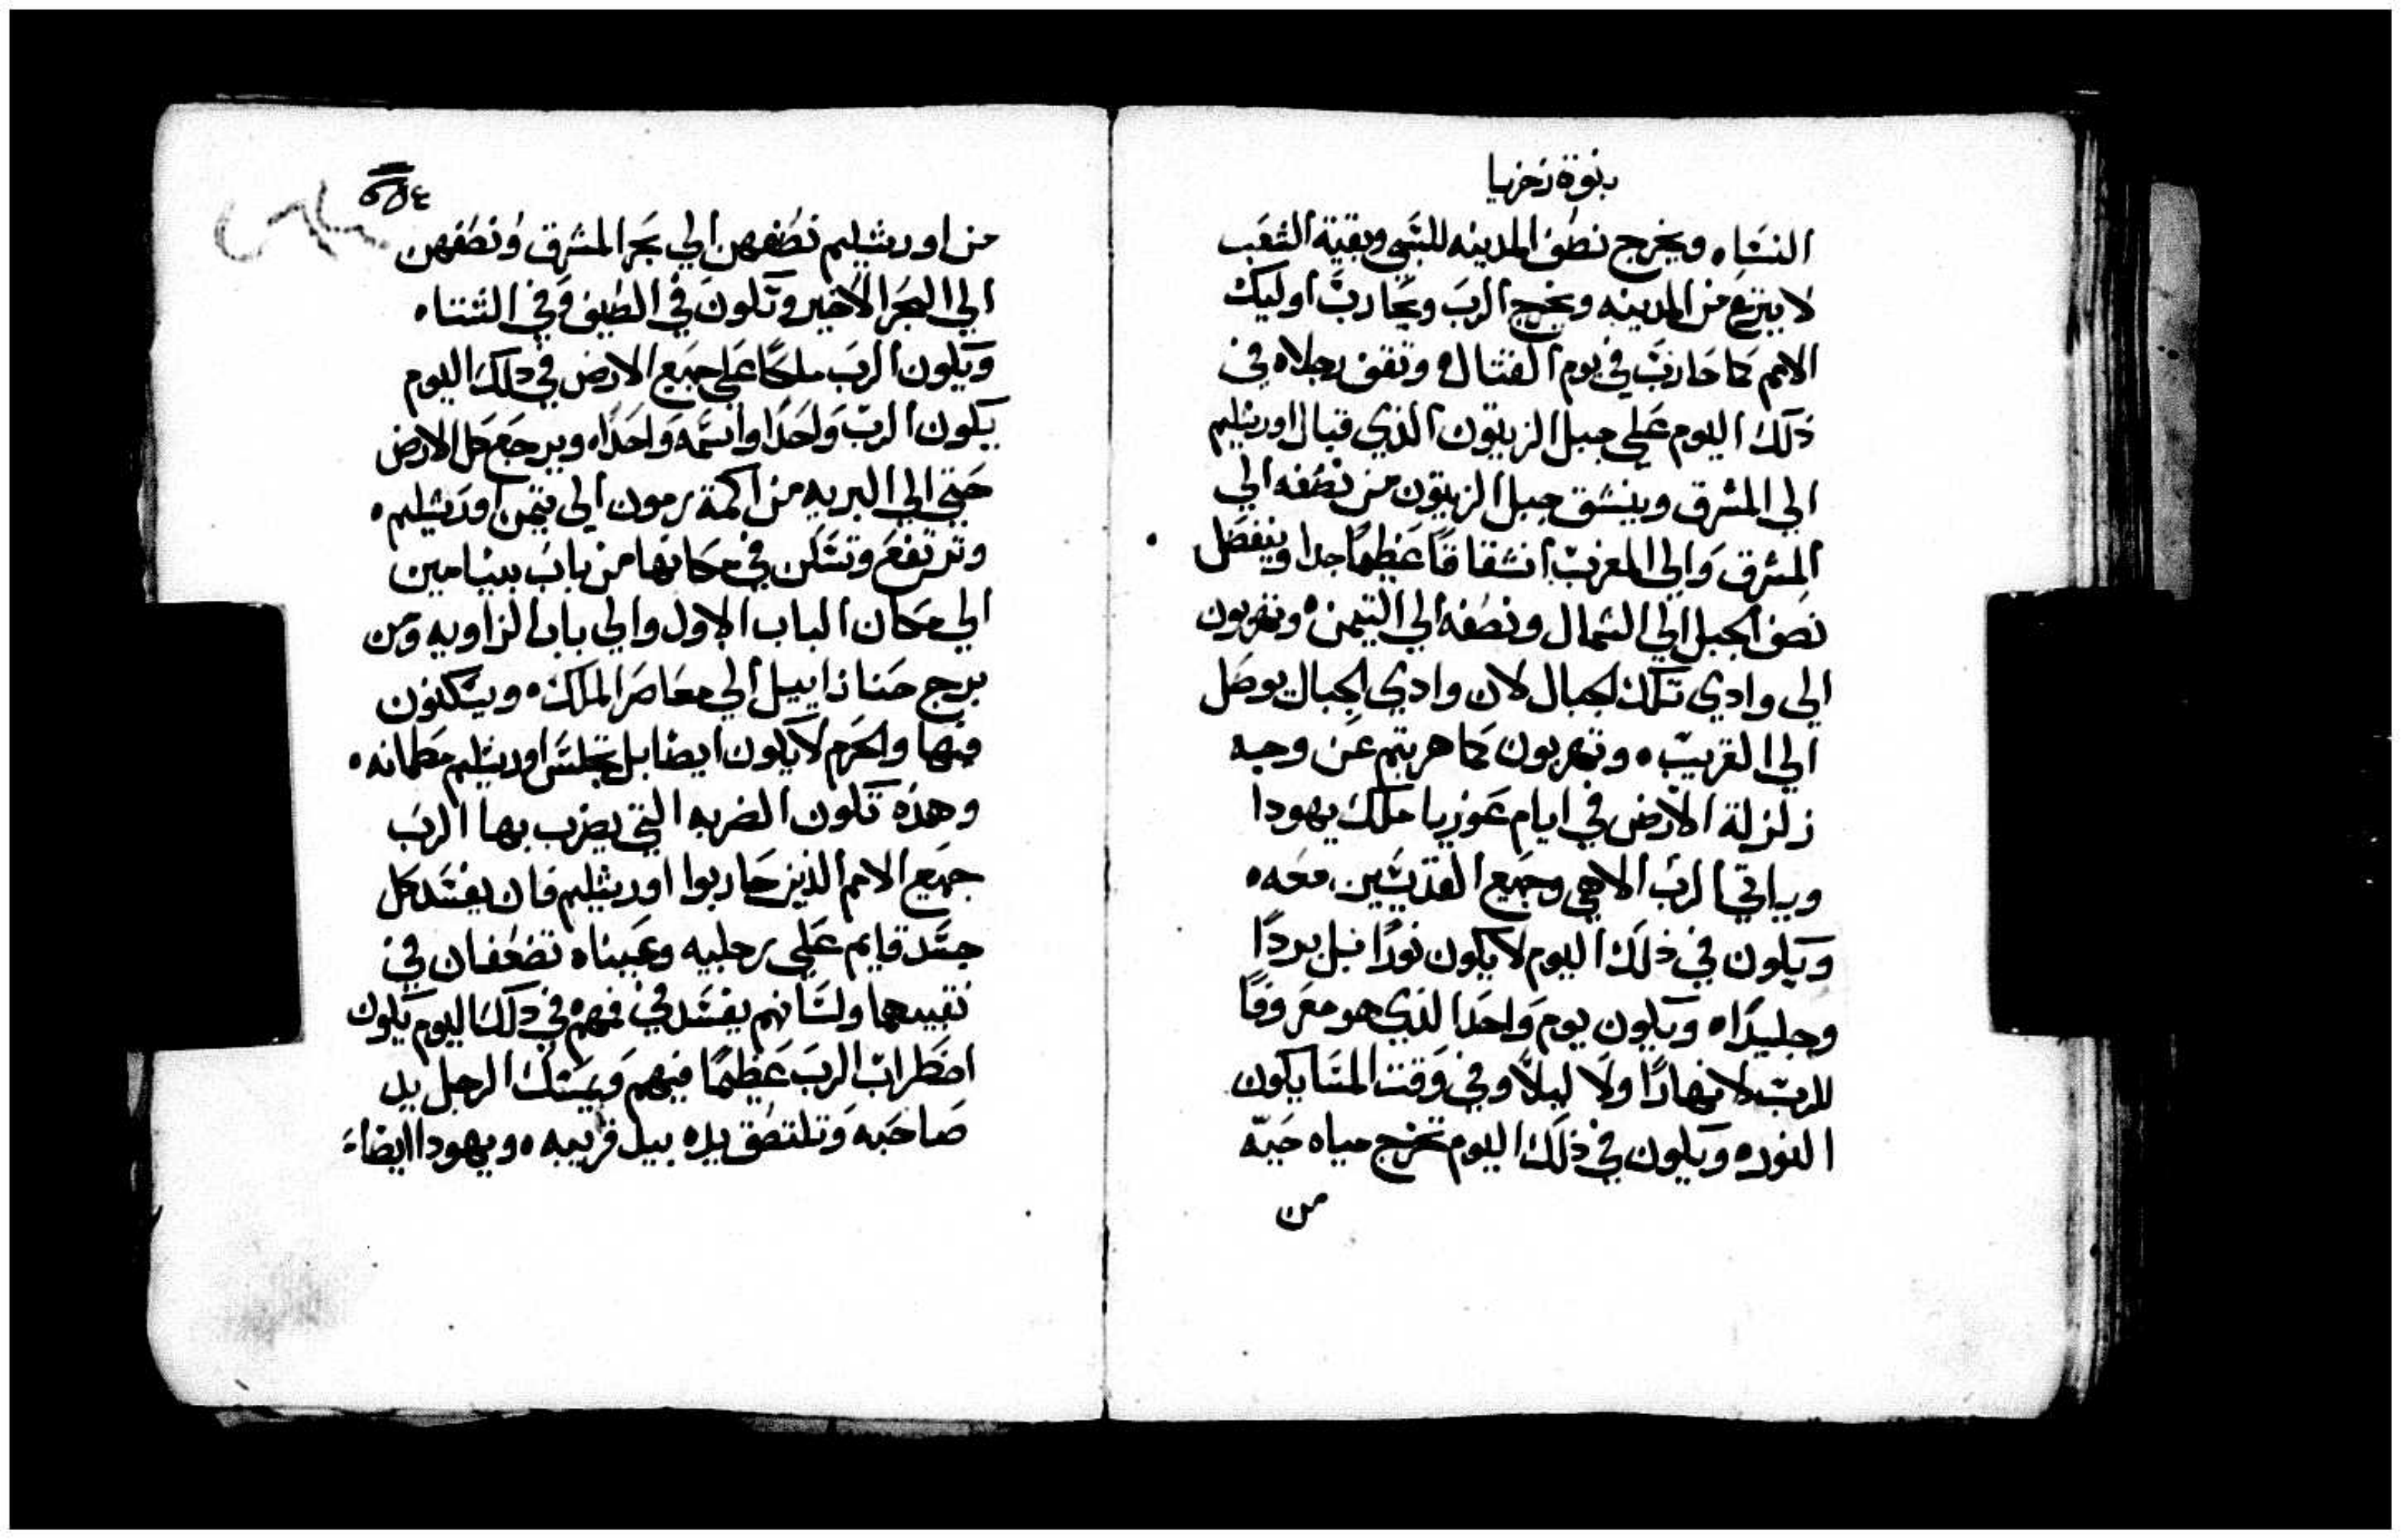 نبوة زخريا
النساء ويخرج نصف المدينه للسبي وبقية الشعب
لا ينتزع من المدينه ويخرج الرب ويحارب اوليك
الامم كما حارب في يوم القتال وتقف رجلاه في
ذلك اليوم علي جبل الزيتون الذي قبال اورشليم
الي المشرق وينشق جبل الزيتون من نصفه الي
المشرق والي المغرب انشقاقًا عظيمًا جدا وينفصل
نصف الجبل الي الشمال ونصفه الي التيمن وتهربون
الي وادي تلك الجبال لان وادي الجبال يوصل
الي القريب وتهربون كما هربتم عن وجه
زلزلة الارض في ايام عوزيا ملك يهودا
وياتي الرب الاهي وجميع القديسين معه
ويكون في ذلك اليوم لا يكون نورًا بل بردًا
وجليدًا ويكون يوم واحدا لذي هو معروفًا
للرب لا نهارًا ولا ليلًا وفي وقت المسا يكون
النور ويكون في ذلك اليوم تخرج مياه حيّه
من
من اورشليم نصفهن الي بحر المشرق ونصفهن
الي البحر الاخير وتكون في الصيف وفي الشتاء
ويكون الرب ملكًا علي جميع الارض في ذلك اليوم
يكون الرب واحدًا واسمه واحدًا ويرجع كل الارض
حتي الي البريه من اكمة رمون الي تيمن اورشليم
وترتفع وتسكن في مكانها من باب بنيامين
الي مكان الباب الاول والي باب الزاويه ومن
برج حنانا اييل الي معاصر الملك ويسكنون
فيها والحرم لا يكون ايضا بل تجلس اورشليم مطمانه
وهذه تكون الضربه التي يضرب بها الرب
جميع الامم الذين حاربوا اورشليم فان يفسد كل
جسد قايم علي رجليه وعيناه تضعفان في
نقبيهما ولسانهم يفسد في فمهم في ذلك اليوم يكون
اضطراب الرب عظيمًا فيهم ويمسك الرجل يد
صاحبه وتلتصق يده بيد قريبه ويهودا ايضا